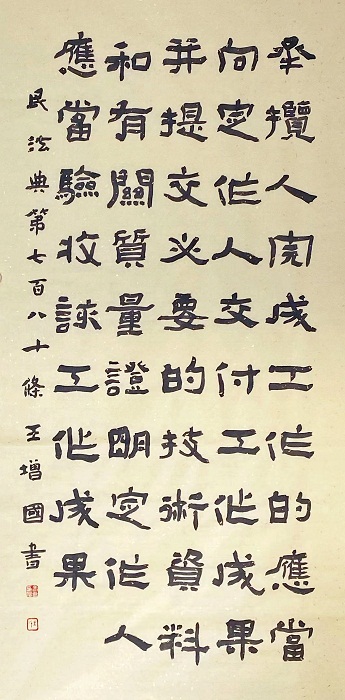 承攬人完成工作的應當
向定作人交付工作成果
并提交必要的技術資料
和有關質量證明定作人
應當驗收該工作成果
民法典第七百八十條 王增國書